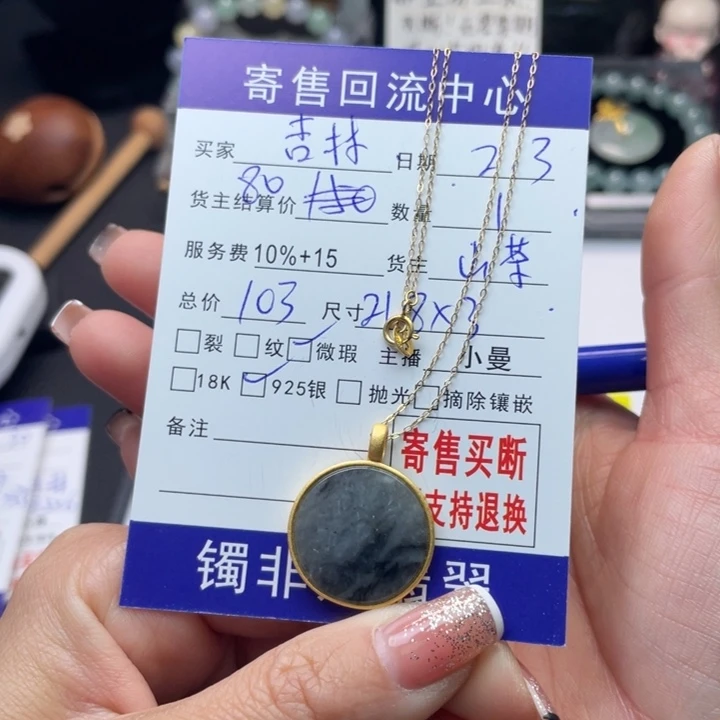 寄售回流中心
买家 吉林 日期 2 3
货主结算价 80 数量 1
服务费 10%+15 货主 山茶
总价 103 尺寸 21.8×3
裂 纹 微瑕 主播 小曼
18K 925银 抛光 摘除镶嵌
备注
寄售买断
支持退换
镯非 翡翠